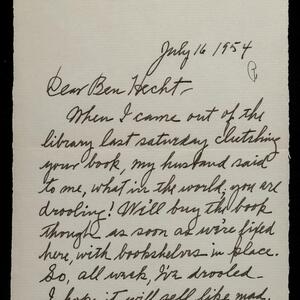 July 16 1954
Dear Ben Hecht –
When I came out of the
library last saturday clutching
your book, my husband said
to me, what in the world, you are
drooling! We'll buy the book
though as soon as we're fixed
here, with bookshelves in place.
So, all week, I've drooled.
I hope it will sell like mad.